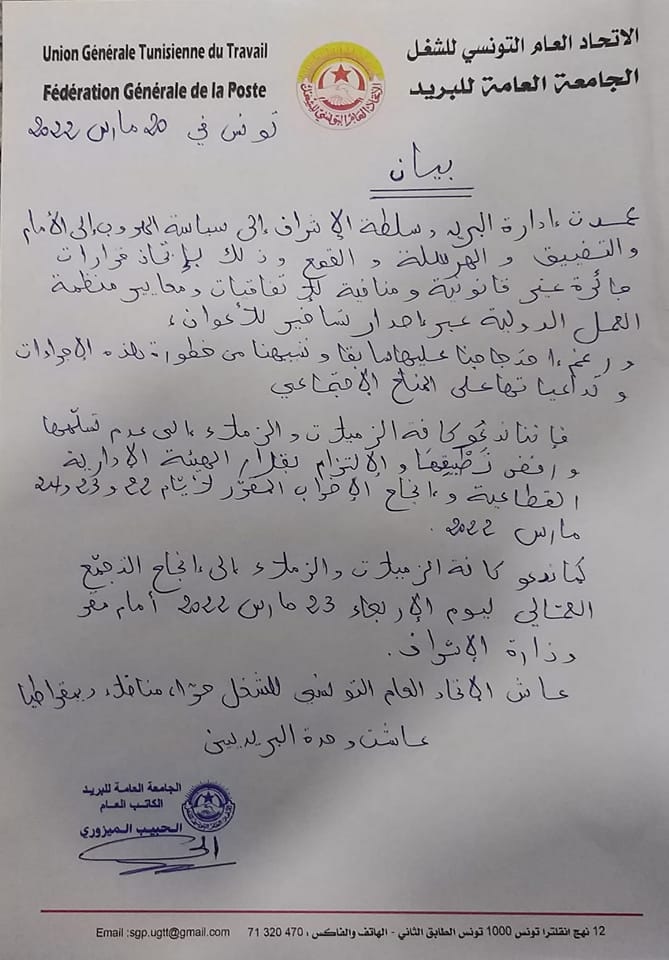 Union Générale Tunisienne du Travail
Fédération Générale de la Poste
الاتحاد العام التونسي للشغل
الجامعة العامة للبريد
تونس في 20 مارس 2022
بيان
عمدت إدارة البريد وسلطة الإشراف إلى سياسة الهروب إلى الأمام
والتضييق والهرسلة والقمع وذلك بإتخاذ قرارات
جائرة غير قانونية ومنافية للإتفاقيات ومعايير منظمة
العمل الدولية عبر إصدار تساخير للأعوان،
ورغم احتجاجنا عليها سابقا وتنبيهنا من خطورة هذه الإجراءات
وتداعياتها على المناخ الإجتماعي
فإننا ندعو كافة الزميلات والزملاء إلى عدم تسلّمها
ورفض تطبيقها والإلتزام بقرار الهيئة الإدارية
القطاعية وإنجاح الإضراب المقرّر لأيّام 22 و23 و24
مارس 2022.
كما ندعو كافة الزميلات والزملاء إلى إنجاح التجمّع
العمّالي ليوم الإربعاء 23 مارس 2022 أمام مقر
وزارة الإشراف.
عاش الإتحاد العام التونسي للشغل حرّا، مناضلا، ديمقراطيا
عاشت وحدة البريديين
الجامعة العامة للبريد
الكاتب العام
الحبيب الميزوري
12 نهج انقلترا تونس 1000 تونس الطابق الثاني - الهاتف والفاكس : 71 320 470 Email :sgp.ugtt@gmail.com